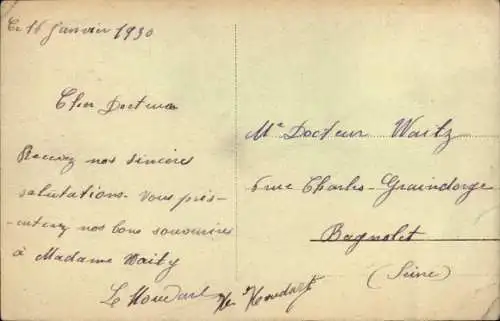 Le 16 Janvier 1930
Cher Docteur
Recevez nos sincères
salutations. Vous prés-
-enterez nos bons souvenires
à Madame Waitz
Houdart Houdart
Mr Docteur Waitz
6 rue Charles-Graindorge
Bagnolet
(Seine)